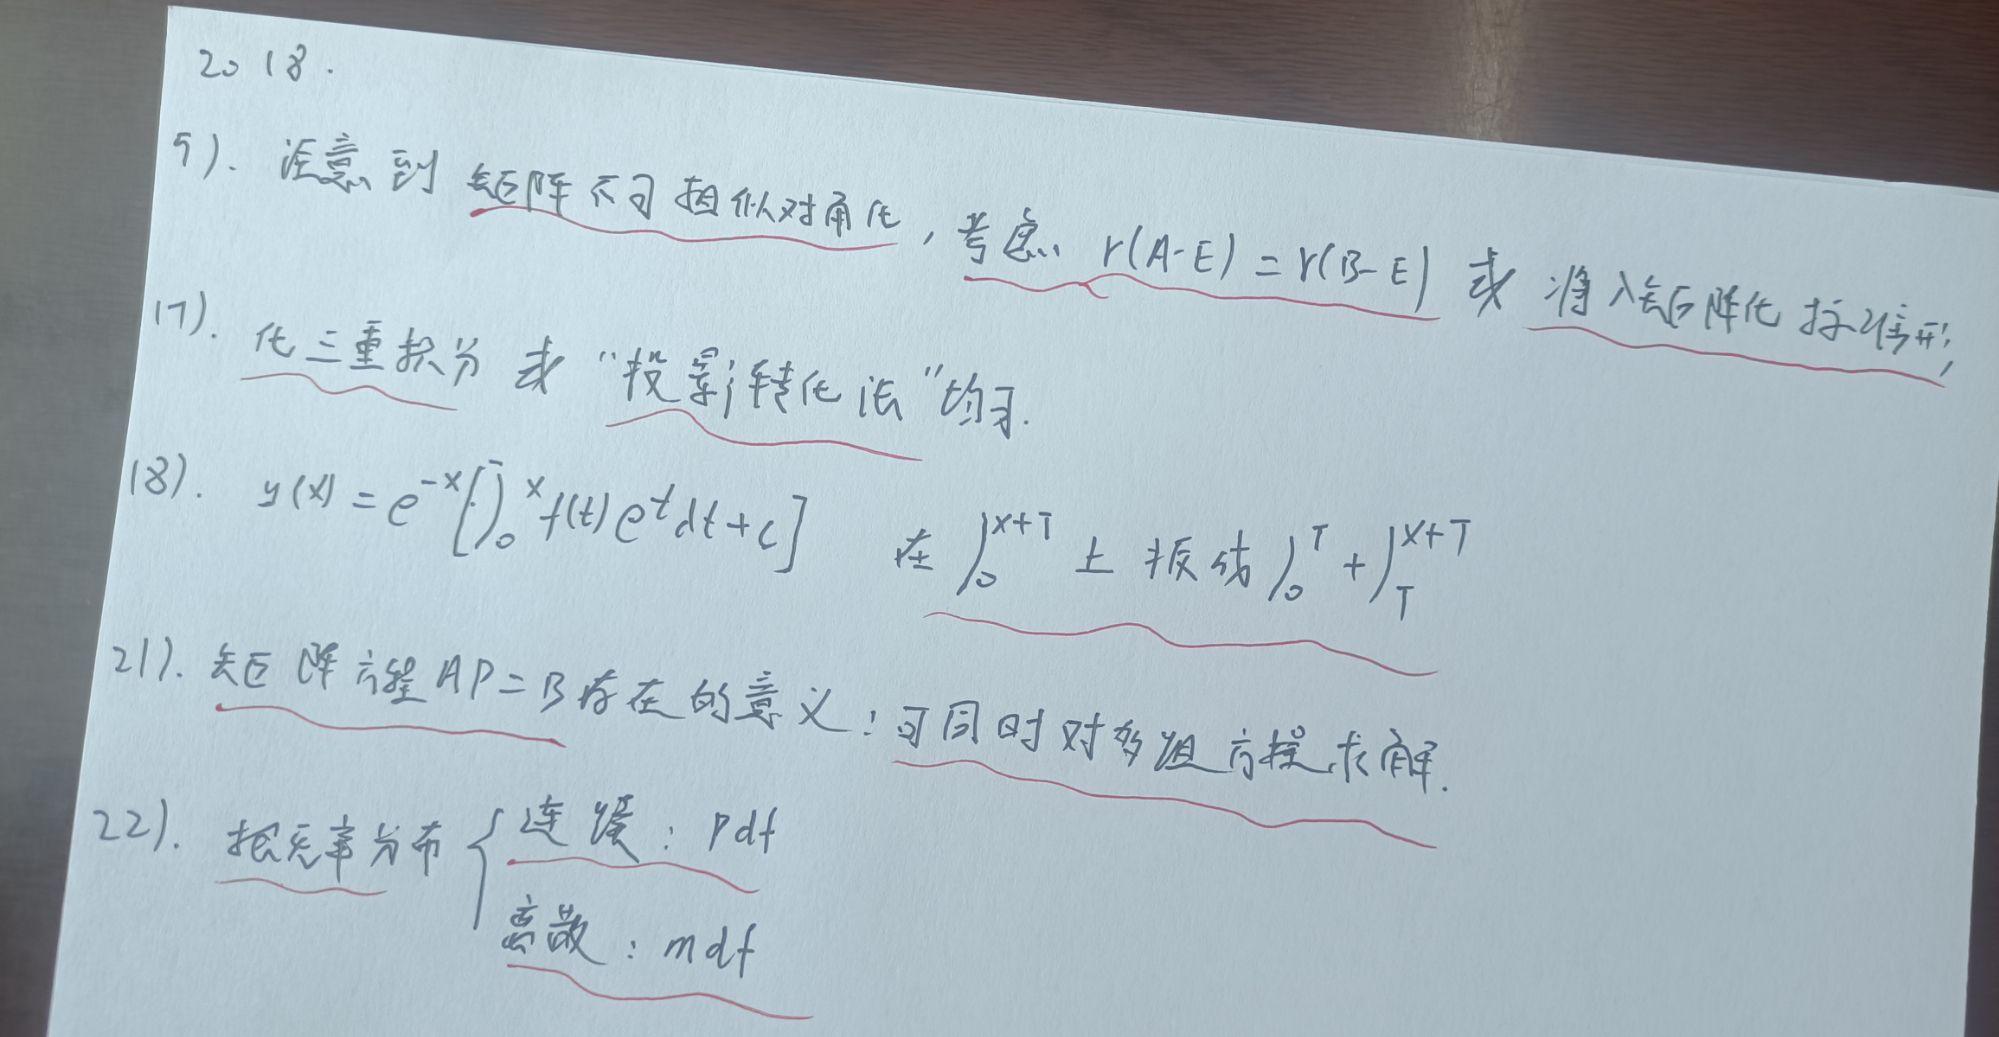 2018.
5). 注意到矩阵不可相似对角化, 考虑 r(A-E)=r(B-E) 或 将λ矩阵化标准形,
17). 化三重积分 或 "投影转化法" 均可.
18). y(x)=e^{-x}[∫_0^x f(t)e^t dt+C] 在∫_0^{x+T}上拆成∫_0^T+∫_T^{x+T}
21). 矩阵方程AP=B存在的意义: 可同时对多组方程求解.
22). 概率分布 { 连续: pdf
离散: mdf